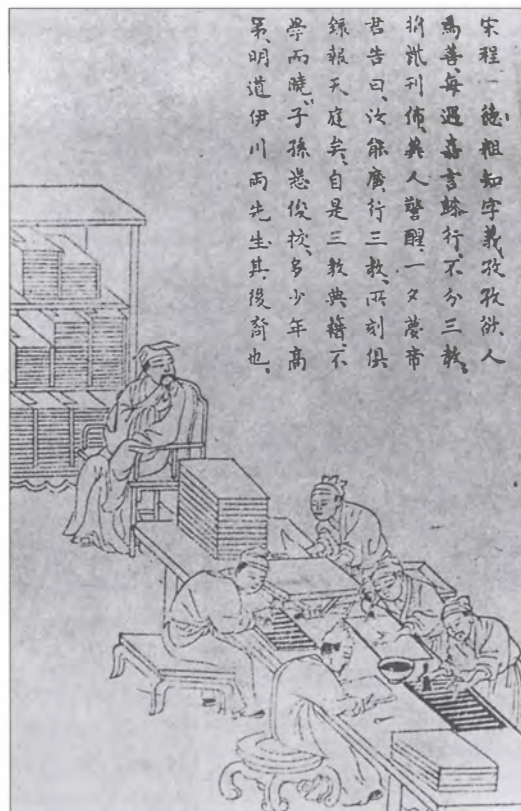 宋程一德粗知字義孜孜欲人
為善、每遇嘉言懿行、不分三教、
捐貲刊佈、冀人警醒、一夕夢帝
君告曰、汝能廣行三教、所刻俱
錄報天庭矣、自是三教典籍、不
學而曉、子孫悉俊拔、多少年高
第、明道伊川兩先生、其後裔也、